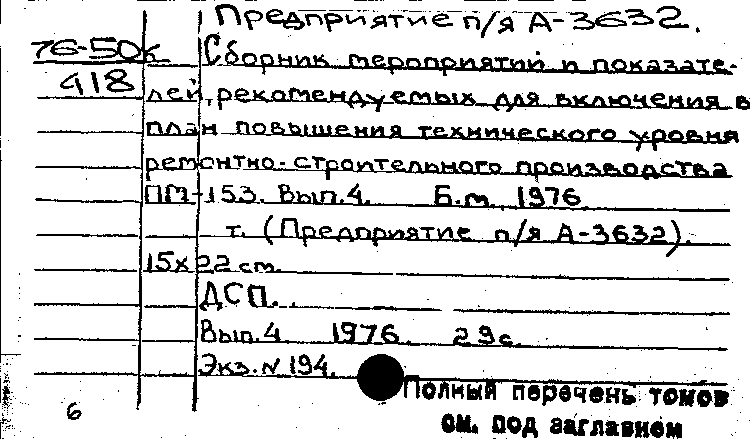 Предприятие п/я А-3632.
76-50к Сборник мероприятий и показате-
418 лей, рекомендуемых для включения в
план повышения технического уровня
ремонтно-строительного производства
ПМ-153. Вып.4. Б.м., 1976
т. (Предприятие п/я А-3632).
15х22 см.
ДСП.
Вып.4 1976. 29с.
Экз.N 194.
Полный перечень томов
см. под заглавием
6